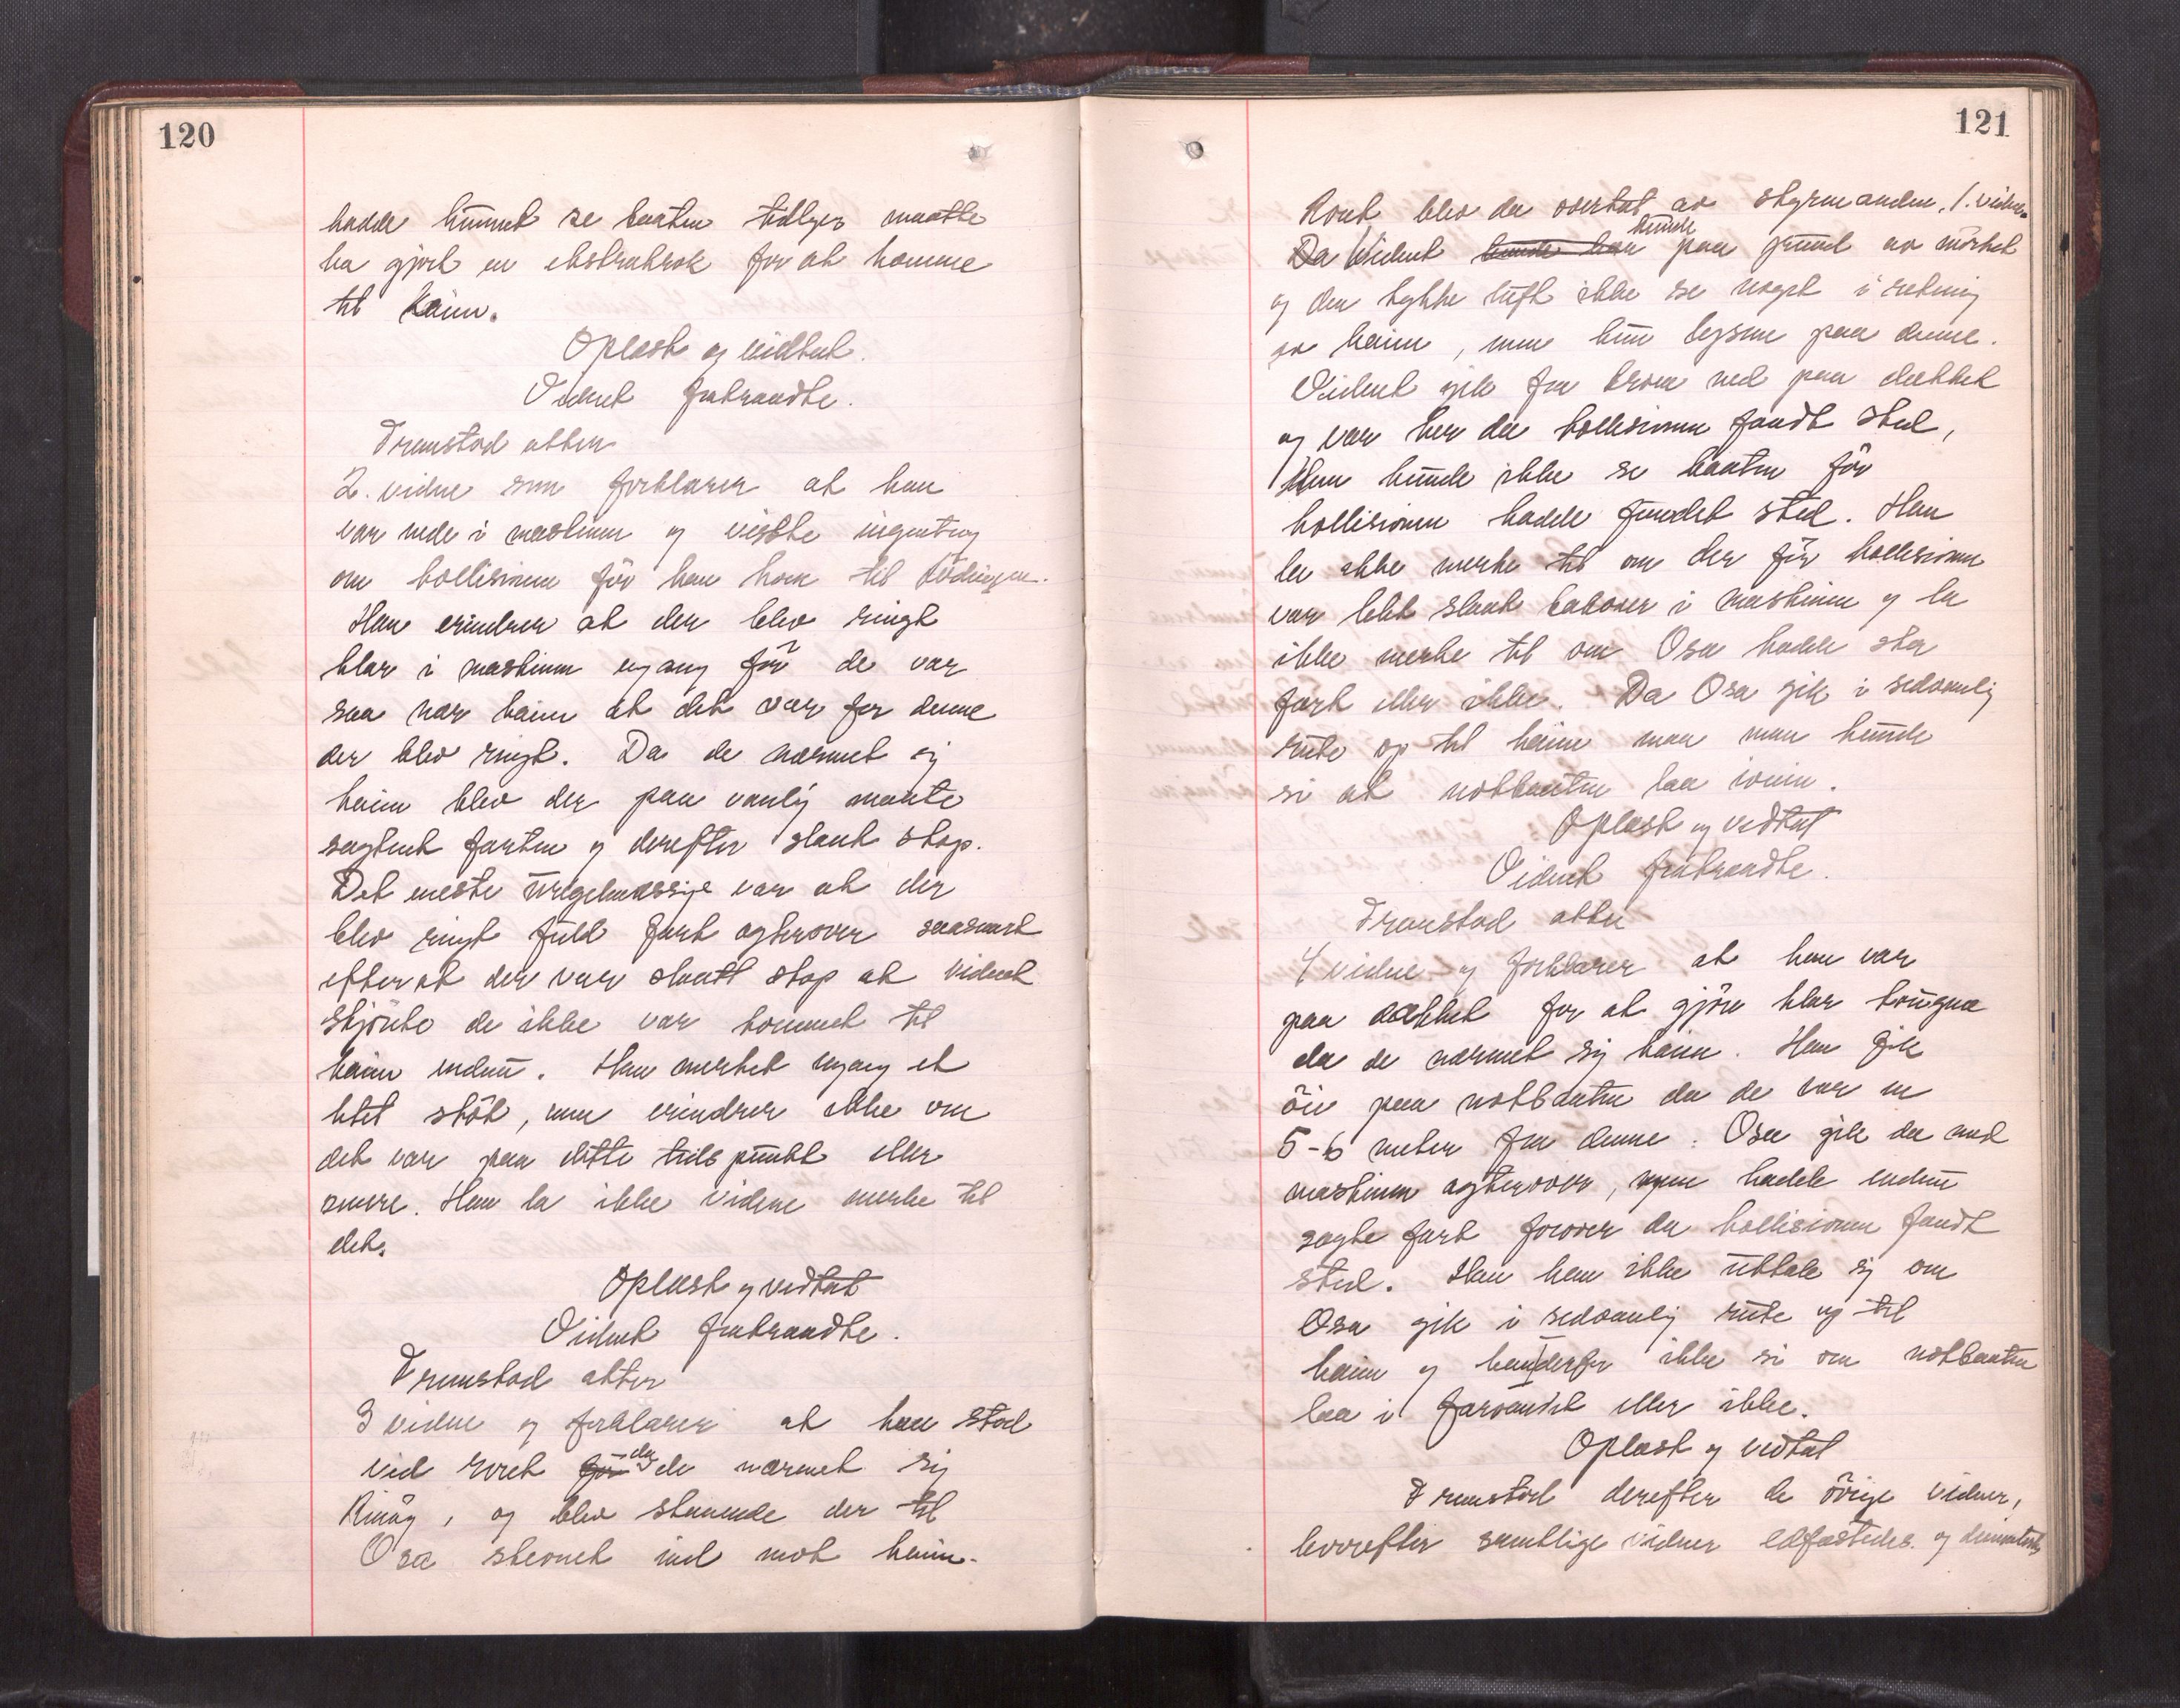 120
hadde kunnet se baaten tidliger maatte
ha gjort en ekstrakrok for at komme
til kaien.
Oplæst og vidtat.
Vidnet fratraadte.
Fremstod atter
2. vidne som forklarer at han
var nede i maskinen og visste ingenting
om kollisionen før han kom til Lødingen.
Han erindrer at der blev ringt
klar i maskinen engang før de var
saa nær kaien at det var for denne
der blev ringt. Da de nærmet sig
kaien blev der paa vanlig maate
sagtnet farten og derefter slaat stop.
Det eneste uregelmæssige var at der
blev ringt fuld fart agterover saasnart
efter at der var slaatt stop at vidnet
skjønte de ikke var kommet til
kaien endnu. Han merket engang et
litet støt, men erindrer ikke om
det var paa dette tidspunkt eller
senere. Han la ikke videre merke til
det.
Oplæst og vedtat
Vidnet fratraadte.
Fremstod atter
3 vidne og forklarer at han stod
ved roret før da de nærmet sig
Rinøy, og blev staaende der til
Osa stevnet ind mot kaien.
121
Roret blev da overtat av styrmanden, 1. vidne.
Da Vidnet kunde han kunde paa grund av mørket
og den tykke luft ikke se noget i retning
av kaien, men kun lysene paa denne.
Vidnet gik fra broen ned paa dækket
og var her da kollisionen fandt sted,
Han kunde ikke se baaten før
kollisionen hadde fundet sted. Han
la ikke merke til om der før kollisionen
var blit slaat bakover i maskinen og la
ikke merke til om Osa hadde stor
fart eller ikke. Da Osa gik i sedvanlig
rute op til kaien maa man kunde
si at notbaaten laa iveien.
Oplæst og vedtat
Vidnet fratraadte.
Fremstod atter
4 vidne og forklarer at han var
paa dækket for at gjøre klar taugene
da de nærmet sig kaien. Han fik
øie paa notbaaten da de var en
5-6 meter fra denne. Osa gik da med
maskinen agterover, men hadde endnu
sagte fart forover da kollisionen fandt
sted. Han kan ikke uttale sig om
Osa gik i sedvanlig rute op til
kaien og kan derfor ikke si om notbaaten
laa i farvandet eller ikke.
Oplæst og vedtat
Fremstod derefter de øvrige vidner,
hvorefter samtlige vidner edfæstedes og dimitertes